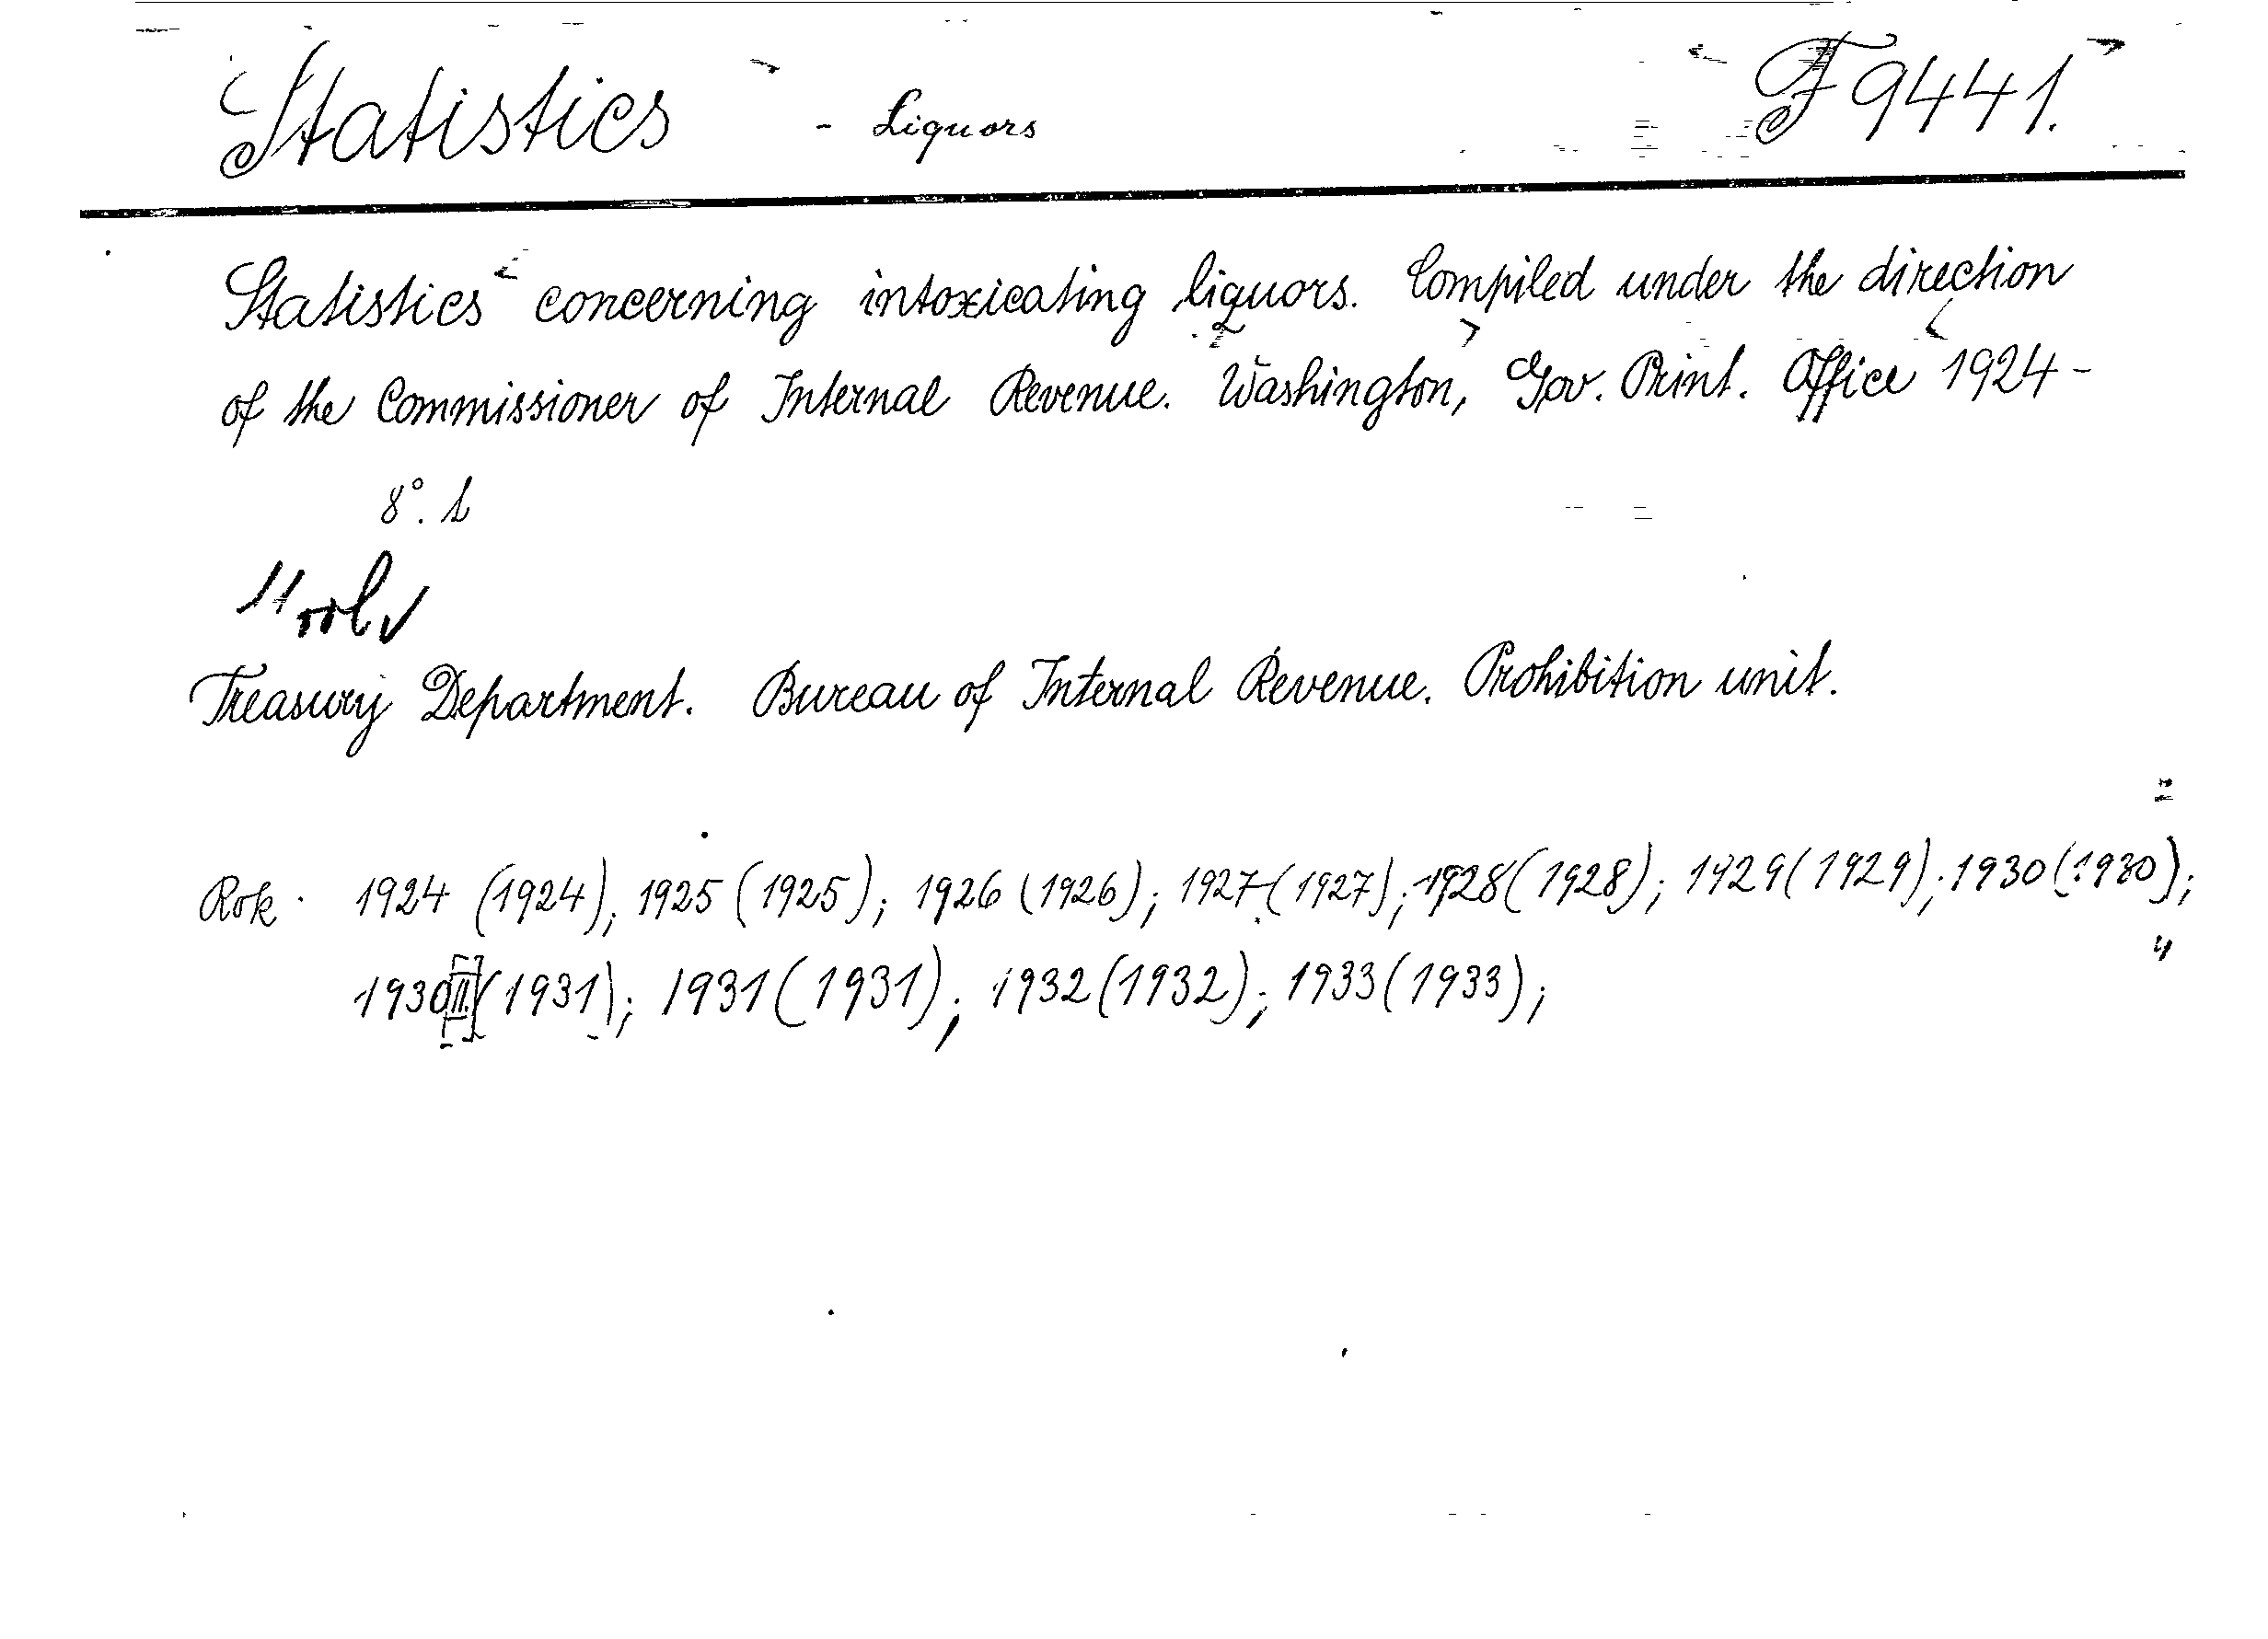 Statistics - Liquors F 9441.
Statistics concerning intoxicating liquors. Compiled under the direction
of the Commissioner of Internal Revenue. Washington, Gov. Print. Office 1924 -
8°.
Treasury Department. Bureau of Internal Revenue. Prohibition unit.
Rok. 1924 (1924); 1925 (1925); 1926 (1926); 1927 (1927); 1928 (1928); 1929 (1929); 1930 (1930);
1930[II.] (1931); 1931 (1931); 1932 (1932); 1933 (1933);